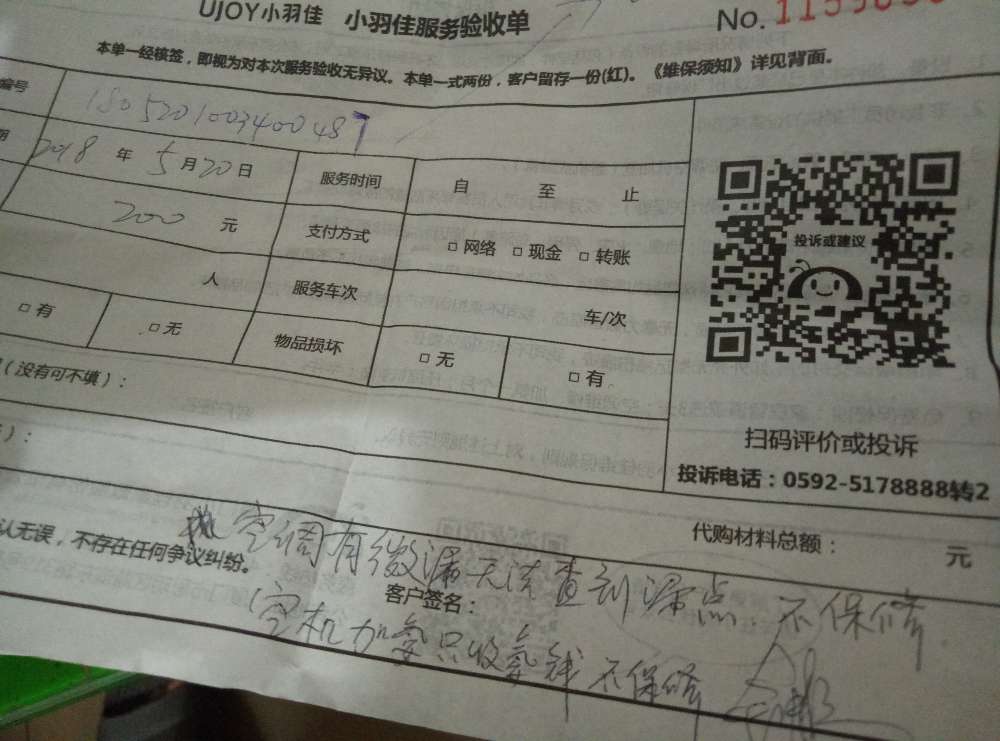 UJOY小羽佳 小羽佳服务验收单
No. 11590
本单一经核签，即视为对本次服务验收无异议。本单一式两份，客户留存一份(红)。《维保须知》详见背面。
编号 1805201003400487
2018 年 5 月 20 日 服务时间 自 至 止
200 元 支付方式 □ 网络 □ 现金 □ 转账
人 服务车次 车/次
□ 有 □ 无 物品损坏 □ 无 □ 有
投诉或建议
(没有可不填)：
扫码评价或投诉
投诉电话：0592-5178888转2
代购材料总额： 元
认无误，不存在任何争议纠纷。
客户签名：
空调有微漏无法查到漏点. 不保修.
空机加氨只收氨钱不保修